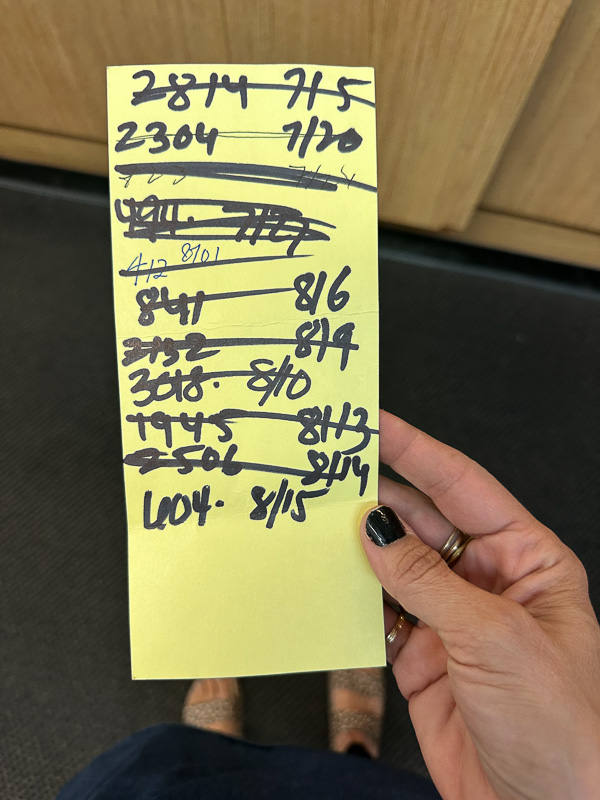 2814 7/15
2304 7/20
494. 7/27
412 8/01
841 8/6
2132 8/9
3018. 8/10
1945 8/13
2506 8/14
604. 8/15